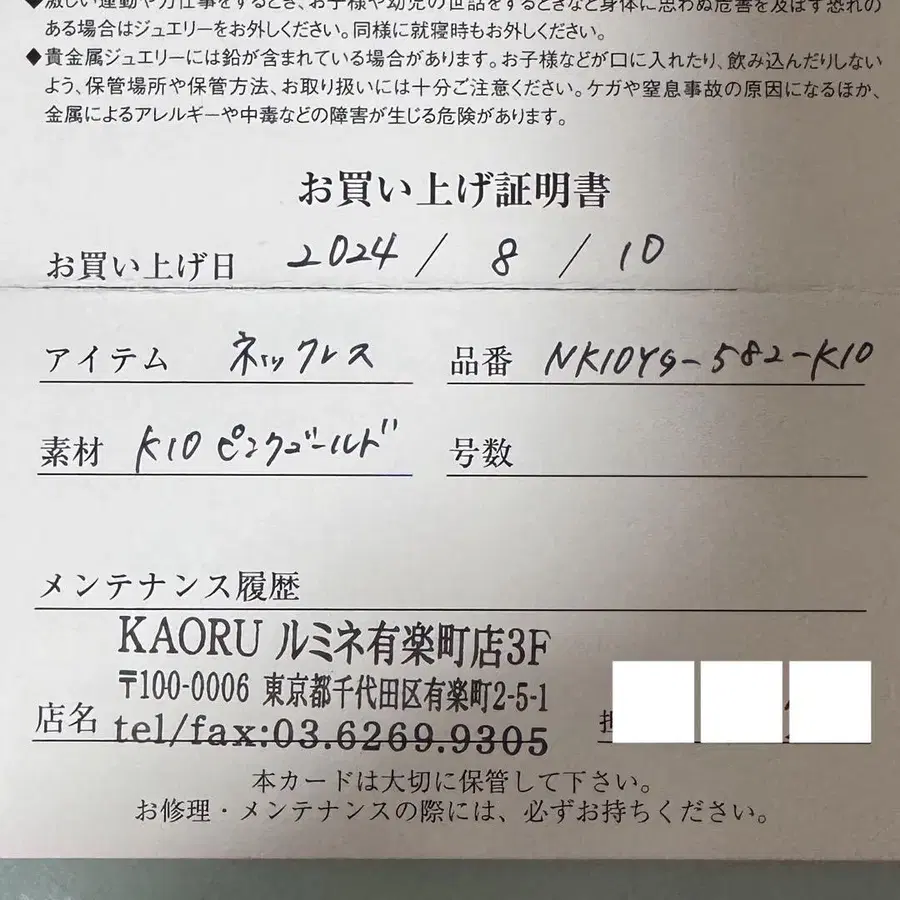 ◆激しい運動や力仕事をするとき、お子様や幼児の世話をするときなど身体に思わぬ危害を及ぼす恐れの
ある場合はジュエリーをお外しください。同様に就寝時もお外しください。
◆貴金属ジュエリーには鉛が含まれている場合があります。お子様などが口に入れたり、飲み込んだりしない
よう、保管場所や保管方法、お取り扱いには十分ご注意ください。ケガや窒息事故の原因になるほか、
金属によるアレルギーや中毒などの障害が生じる危険があります。
お買い上げ証明書
お買い上げ日 2024 / 8 / 10
アイテム ネックレス 品番 NK10YG-582-K10
素材 K10 ピンクゴールド 号数
メンテナンス履歴
KAORU ルミネ有楽町店3F
〒100-0006 東京都千代田区有楽町2-5-1
店名 tel/fax:03.6269.9305
本カードは大切に保管して下さい。
お修理・メンテナンスの際には、必ずお持ちください。